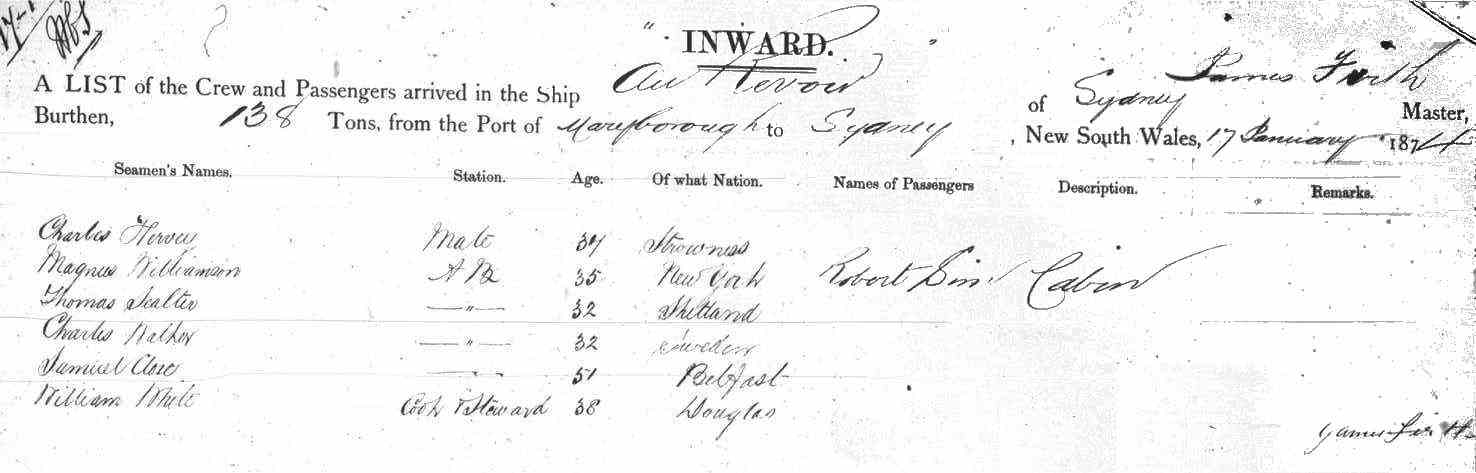 " INWARD. "
A LIST of the Crew and Passengers arrived in the Ship Au Revoir of Sydney James Firth Master,
Burthen, 138 Tons, from the Port of Maryborough to Sydney , New South Wales, 17 January 1874
Seamen's Names. Station. Age. Of what Nation. Names of Passengers Description. Remarks.
Charles Hervey Mate 37 Strowness
Magnus Williamson A B 35 New York Robert Sim Cabin
Thomas Scalter —"— 32 Shetland
Charles Walker —"— 32 Sweden
Samuel Close —"— 51 Belfast
William White Cook & Steward 38 Douglas
James Firth